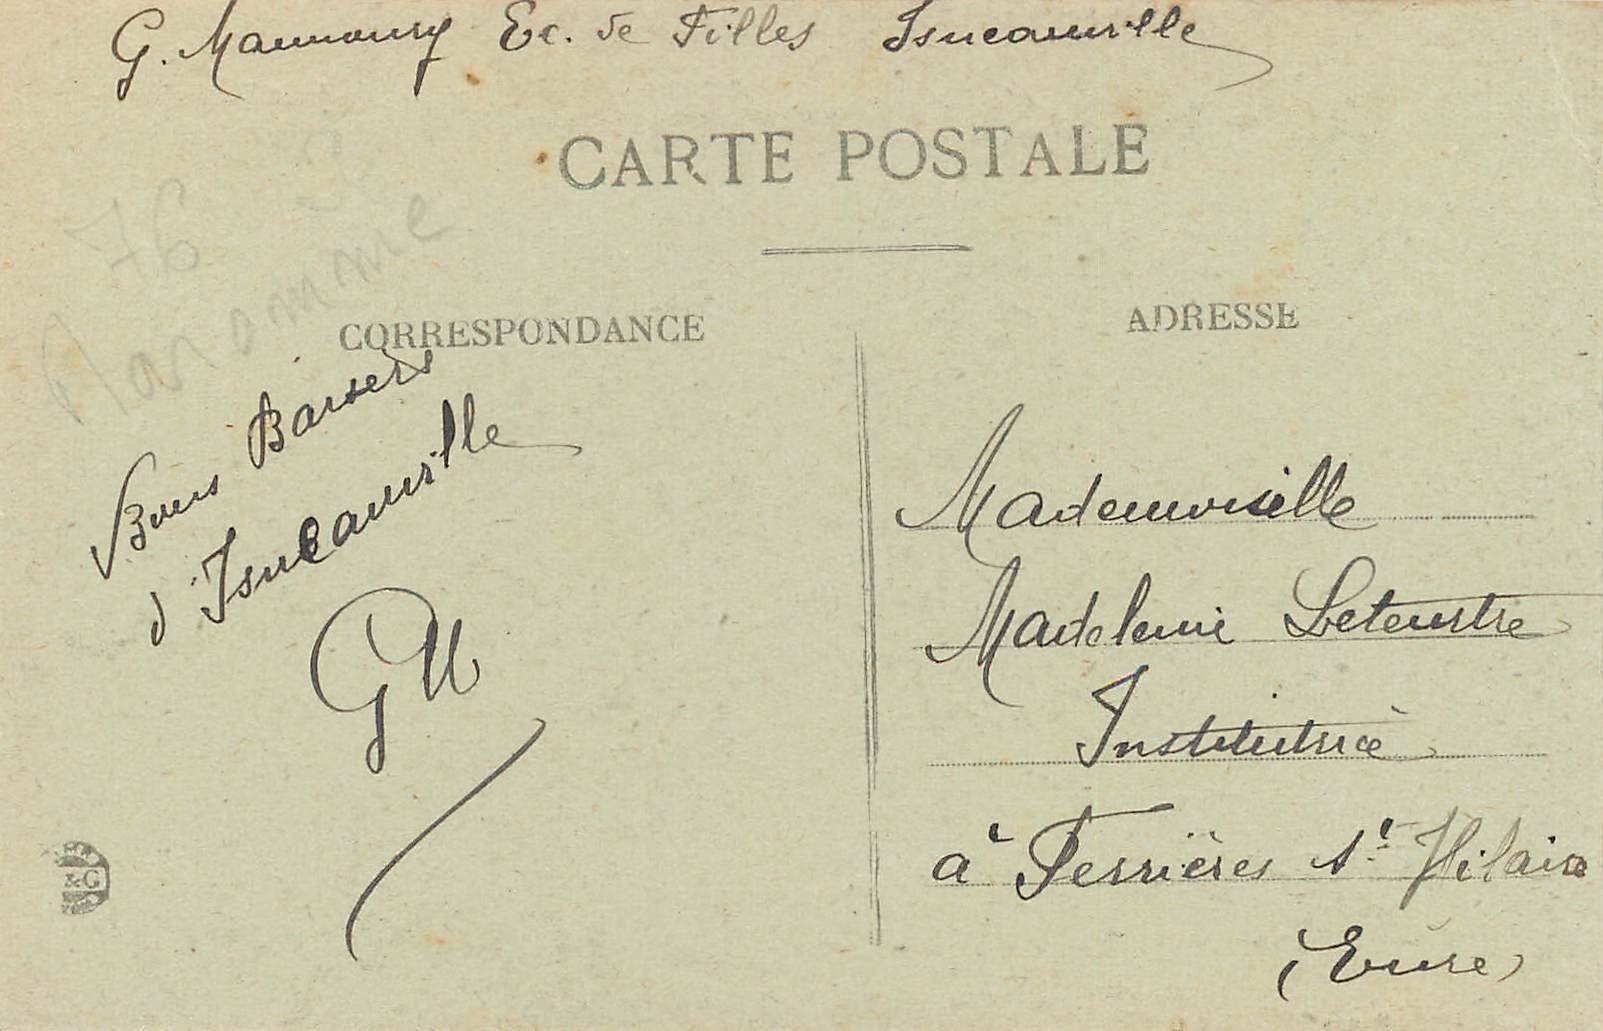 G. Maunoury Ec. de Filles Isneauville
CARTE POSTALE
76
Maromme
CORRESPONDANCE
Bons Baisers
d'Isneauville
GM
&G
ADRESSE
Mademoiselle
Madeleine Letenstre
Institutrice
à Ferrières St Hilaire
(Eure)